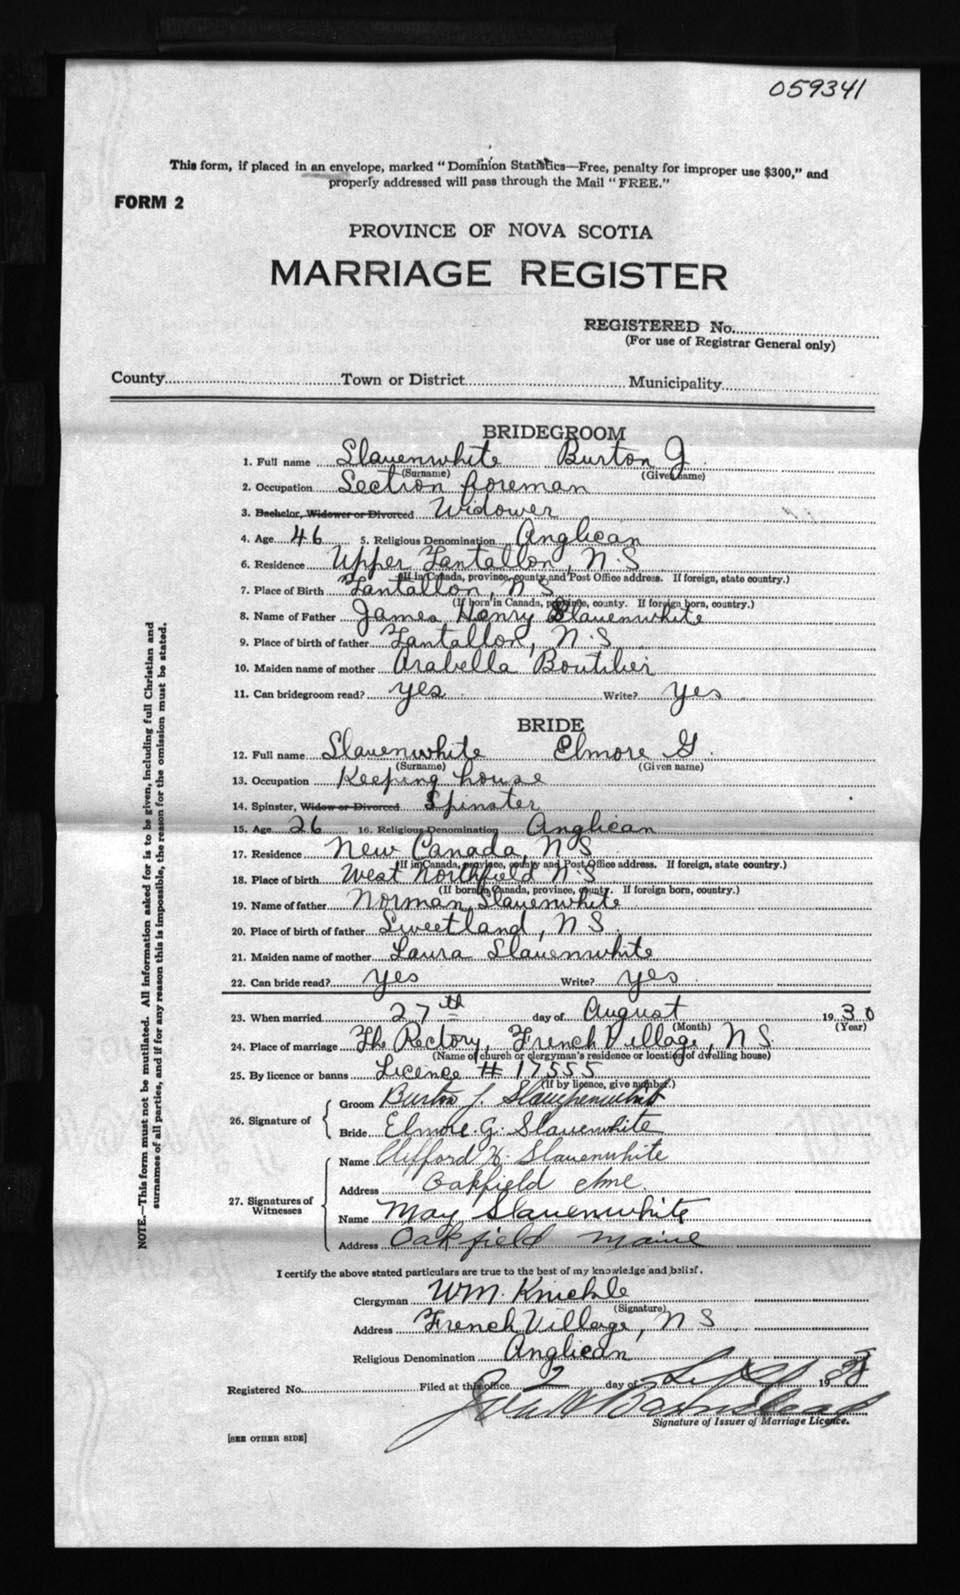 059341
This form, if placed in an envelope, marked "Dominion Statistics—Free, penalty for improper use $300," and
properly addressed will pass through the Mail "FREE."
FORM 2
PROVINCE OF NOVA SCOTIA
MARRIAGE REGISTER
REGISTERED No.
(For use of Registrar General only)
County Town or District Municipality
BRIDEGROOM
1. Full name Slauenwhite Burton J.
(Surname) (Given name)
2. Occupation Section foreman
3. Bachelor, Widower or Divorced Widower
4. Age 46 5. Religious Denomination Anglican
6. Residence Upper Tantallon, N.S
(If in Canada, province, county and Post Office address. If foreign, state country.)
7. Place of Birth Tantallon, N S
(If born in Canada, province, county. If foreign born, country.)
8. Name of Father James Henry Slauenwhite
9. Place of birth of father Tantallon, N.S
10. Maiden name of mother Arabella Boutilier
11. Can bridegroom read? yes Write? yes
BRIDE
12. Full name Slauenwhite Elmore G.
(Surname) (Given name)
13. Occupation Keeping house
14. Spinster, Widow or Divorced Spinster
15. Age 26 16. Religious Denomination Anglican
17. Residence New Canada, N S
(If in Canada, province, county and Post Office address. If foreign, state country.)
18. Place of birth West Northfield N.S
(If born in Canada, province, county. If foreign born, country.)
19. Name of father Norman Slauenwhite
20. Place of birth of father Sweetland, N S
21. Maiden name of mother Laura Slauenwhite
22. Can bride read? yes Write? yes
23. When married 27th day of August 1930
(Month) (Year)
24. Place of marriage The Rectory, French Village, N S.
(Name of church or clergyman's residence or location of dwelling house)
25. By licence or banns Licence # 17555
(If by licence, give number.)
26. Signature of
Groom Burton J. Slaughenwhite
Bride Elmore. G. Slauenwhite
27. Signatures of Witnesses
Name Clifford H. Slauenwhite
Address Oakfield Me.
Name May Slauenwhite
Address Oakfield Maine
I certify the above stated particulars are true to the best of my knowledge and belief.
Clergyman Wm. Knickle
(Signature)
Address French Village, N S
Religious Denomination Anglican
Registered No. Filed at this office 2 day of Sept 1930
Signature of Issuer of Marriage Licence.
[SEE OTHER SIDE]
NOTE.—This form must not be mutilated. All information asked for is to be given, including full Christian and
surnames of all parties, and if for any reason this is impossible, the reason for the omission must be stated.